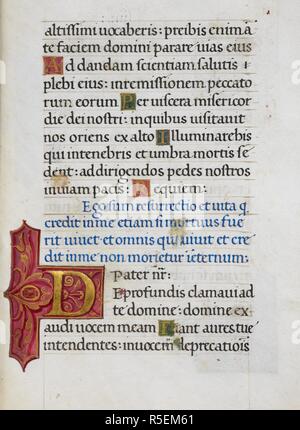 altissimi uocaberis: preibis enim a
te faciem domini parare uias eius
Ad dandam scientiam salutis
plebi eius: inremissionem peccato
rum eorum Per uiscera misericor
die dei nostri: inquibus uisitauit
nos oriens ex alto Illuminarehis
qui intenebris et umbra mortis se
dent: addirigendos pedes nostros
inuiam pacis: Requiem:
Ego sum resurectio et uita q
credit in me etiam si mortuus fue
rit uiuet et omnis qui uiuit et cre
dit in me non morietur ieternum:
Pater nr:
De profundis clamaui ad
te domine: domine ex
audi uocem meam Fiant aures tue
intendentes: inuocem deprecatiois
alamy
Image ID: R5EM61
www.alamy.com